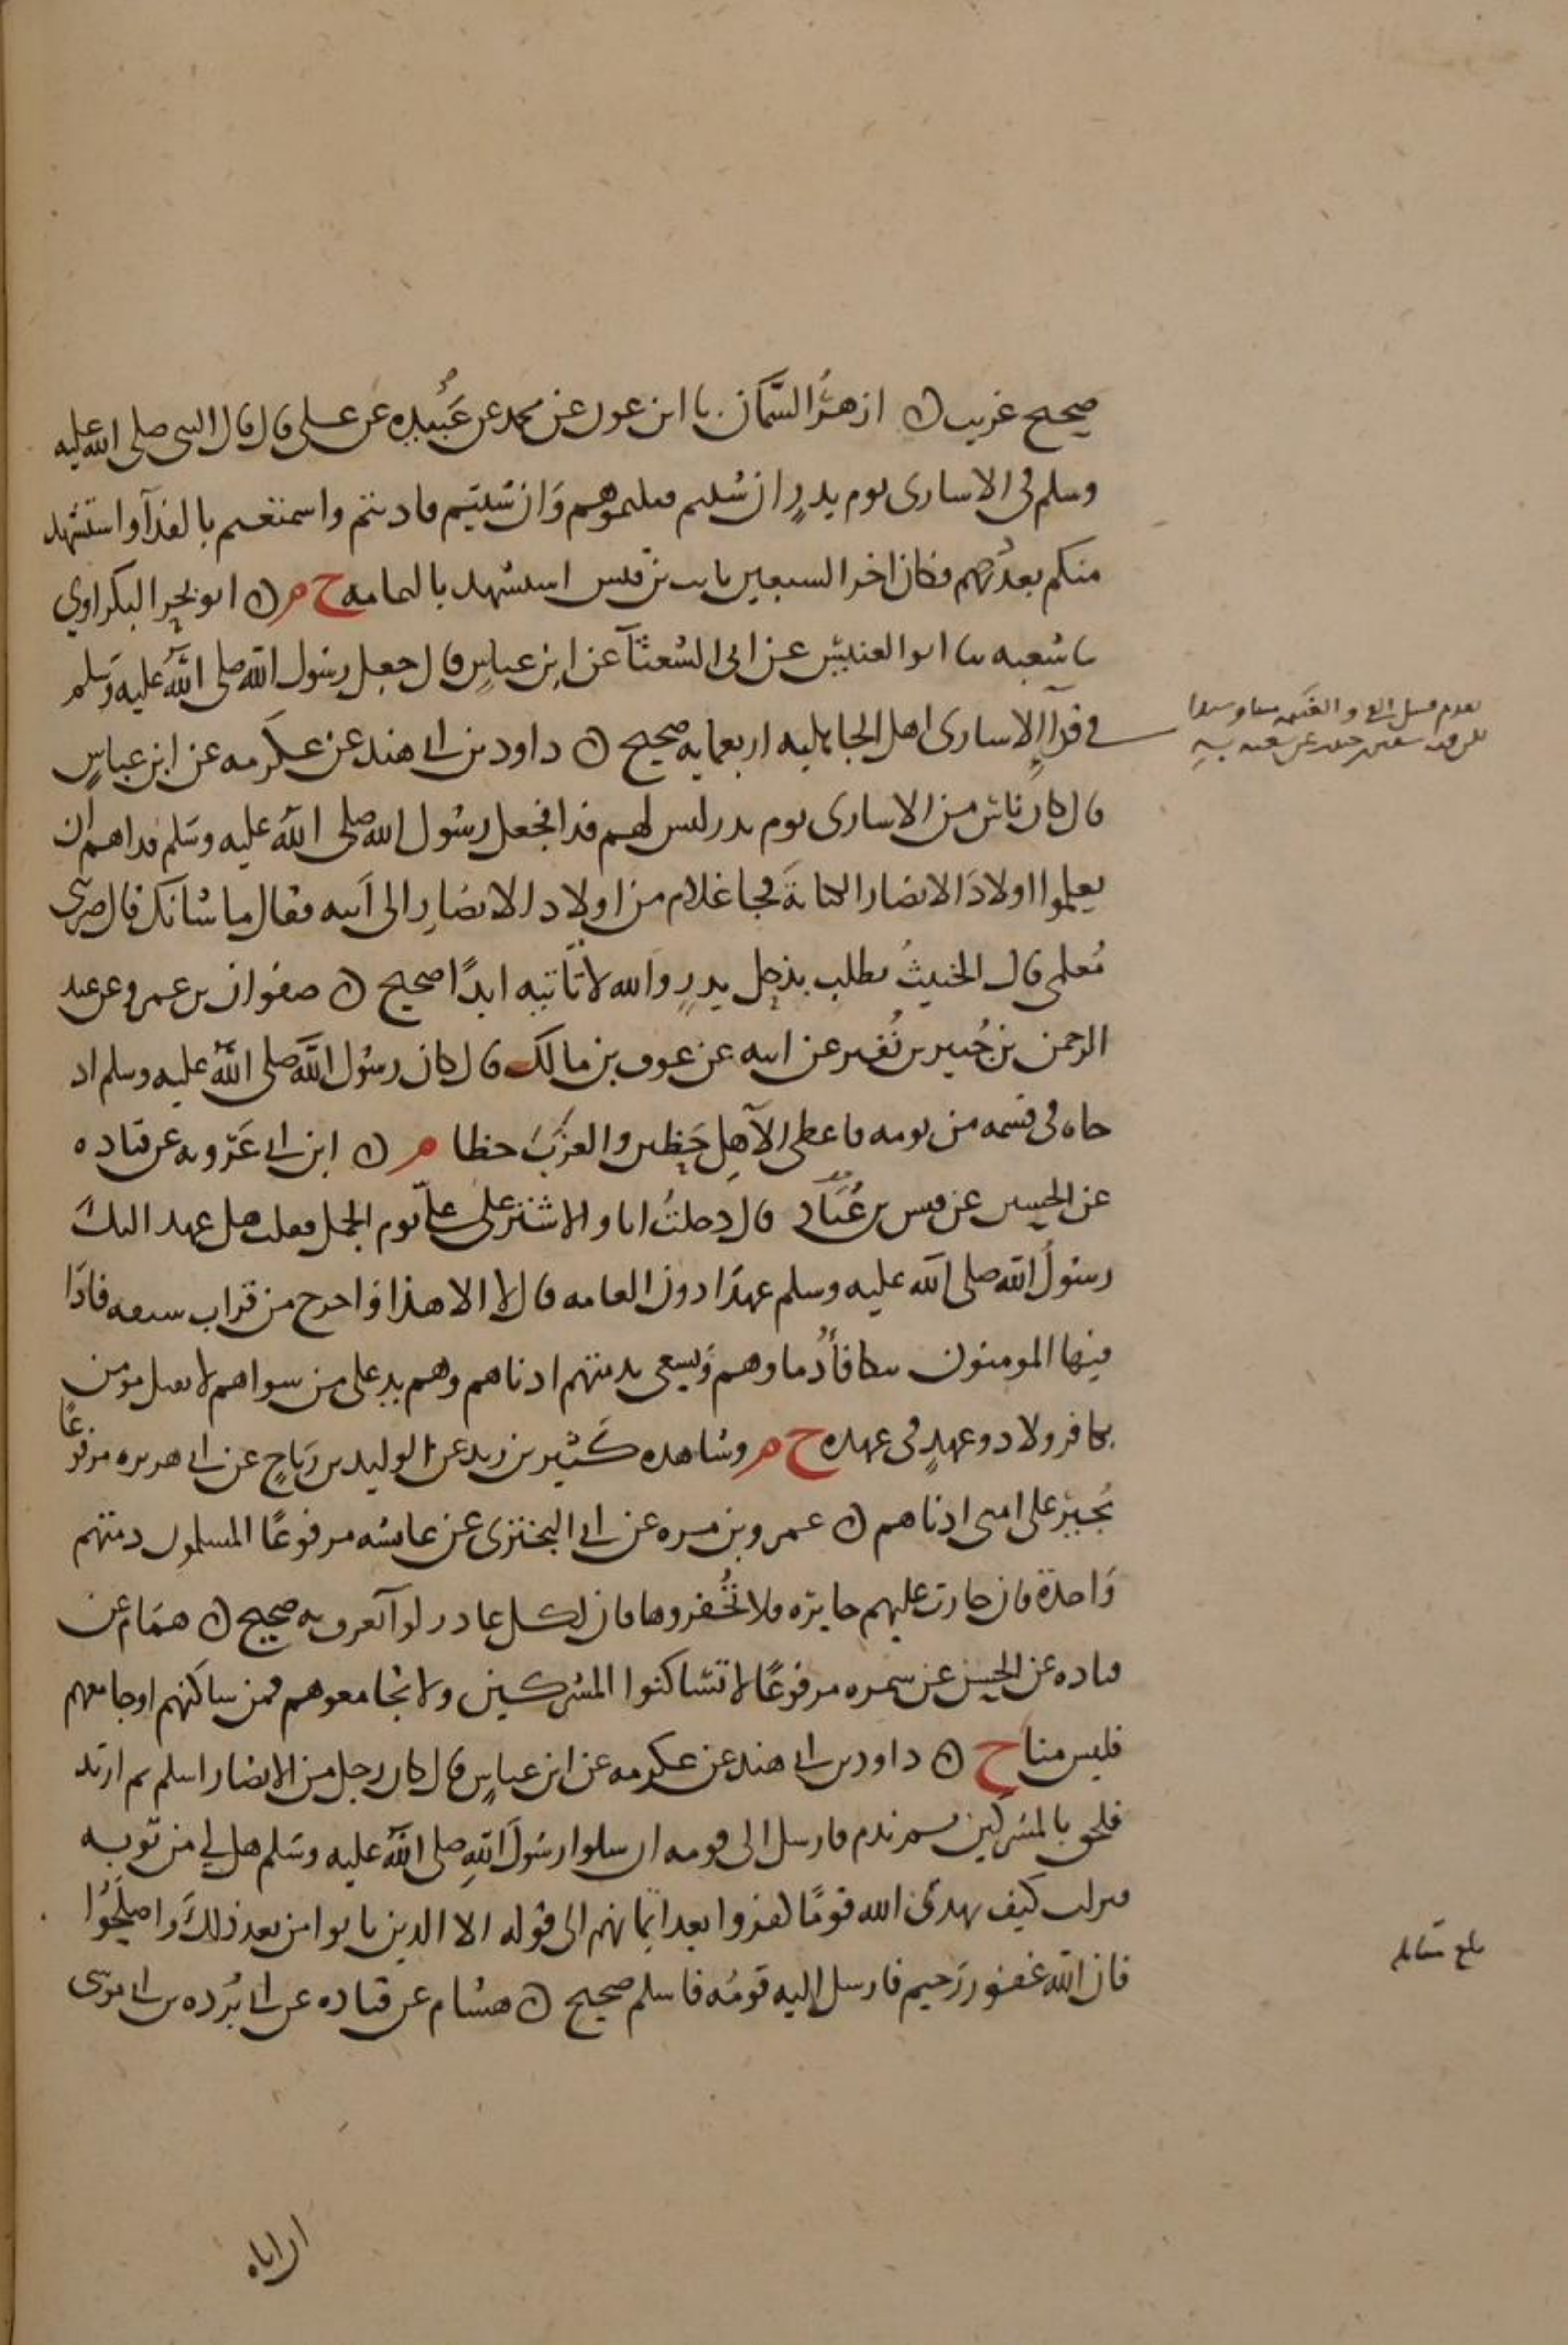 صحيح غريب ه ازهر السَّمَّان نا ابن عون عن محمد عن عَبيده عن على قال قال النبى صلى الله عليه
وسلم فى الاسارى يوم بدرٍ ان شئتم قتلتموهم وَان شئتم فاديتم واستمتعتم بالفدآ واستشهد
منكم بعدتهم فكان اخر السبعين ثابت بن قيس استشهد باليمامه خ م ه ابو بحر البكراوي
نا شعبه نا ابو العنبس عن ابى الشعثآ عن ابن عباسٍ قال جعل رسول الله صلى الله عليه وسلم
في فدآ الاسارى اهل الجاهليه اربعمايه صحيح ه داود بن ابى هند عن عكرمه عن ابن عباسٍ
قال كان ناسٌ من الاسارى يوم بدر ليس لهم فدا فجعل رسُول الله صلى الله عليه وسلم فداهم ان
يعلموا اولادَ الانصار الكتابةَ فجا غلام من اولاد الانصارِ الى اَبيه فقال ما شانك قال ضربنى
مُعلمى قال الخبيثُ يطلب بذحل بدرٍ والله لا تاتيه ابدًا صحيح ه صفوان بن عمرو عن عبد
الرحمن بن جُبير بن نُفير عن ابيه عن عوف بن مالك قال كان رسُول الله صلى الله عليه وسلم اذا
جاه فى قسمه من يومه فاعطى الآهِل حَظين والعزَبَ حظا م ه ابن ابى عَرُوبه عن قتاده
عن الحسن عن قيس بن عُبَاد قال دخلتُ انا والاشتر على عليّ يوم الجمل فقلت هل عهد اليك
رسولُ الله صلى الله عليه وسلم عهدًا دون العامه قال لا الا هذا واخرج من قراب سيفه فاذا
فيها المومنون تتكافأُ دماوهم وَيسعى بذمتهم ادناهم وهم يد على من سواهم لا يقتل مومن
بكافر ولا ذو عهدٍ فى عهده خ م وشاهده كَثير بن زيد عن الوليد بن رَباحٍ عن ابى هريره مرفوعًا
يُجيرُ على امتى ادناهم ه عمرو بن مره عن ابى البختري عن عائشه مرفوعًا المسلمون ذمتهم
وَاحدة فان جارت عليهم جايزه فلا تُخفروها فان لكل غادر لوآ يُعرف به صحيح ه همَّام عن
قتاده عن الحسن عن سمره مرفوعًا لا تساكنوا المشركين ولا تجامعوهم فمن ساكنهم او جامعهم
فليس منا خ ه داود بن ابى هند عن عكرمه عن ابن عباسٍ قال كان رجل من الانصار اسلم ثم ارتد
فلحق بالمشركين ثم ندم فارسل الى قومه ان سلوا رسُولَ اللهِ صلى الله عليه وسَلم هل لي من توبه
فنزلت كيف يهدى الله قومًا كفروا بعد ايمانهم الى قوله الا الذين تابوا من بعد ذلك وَاصلَحُوا
فان الله غفور رَحيم فارسل اليه قومُه فاسلم صحيح ه هشام عن قتاده عن ابى بُرده بن ابى موسى
بلغ مقابله